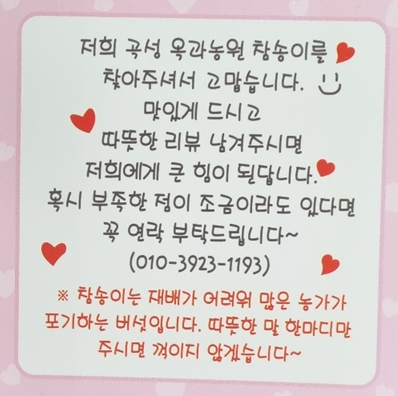 저희 곡성 옥과농원 참송이를
찾아주셔서 고맙습니다.
맛있게 드시고
따뜻한 리뷰 남겨주시면
저희에게 큰 힘이 된답니다.
혹시 부족한 점이 조금이라도 있다면
꼭 연락 부탁드립니다~
(010-3923-1193)
※ 참송이는 재배가 어려워 많은 농가가
포기하는 버섯입니다. 따뜻한 말 한마디만
주시면 꺾이지 않겠습니다~